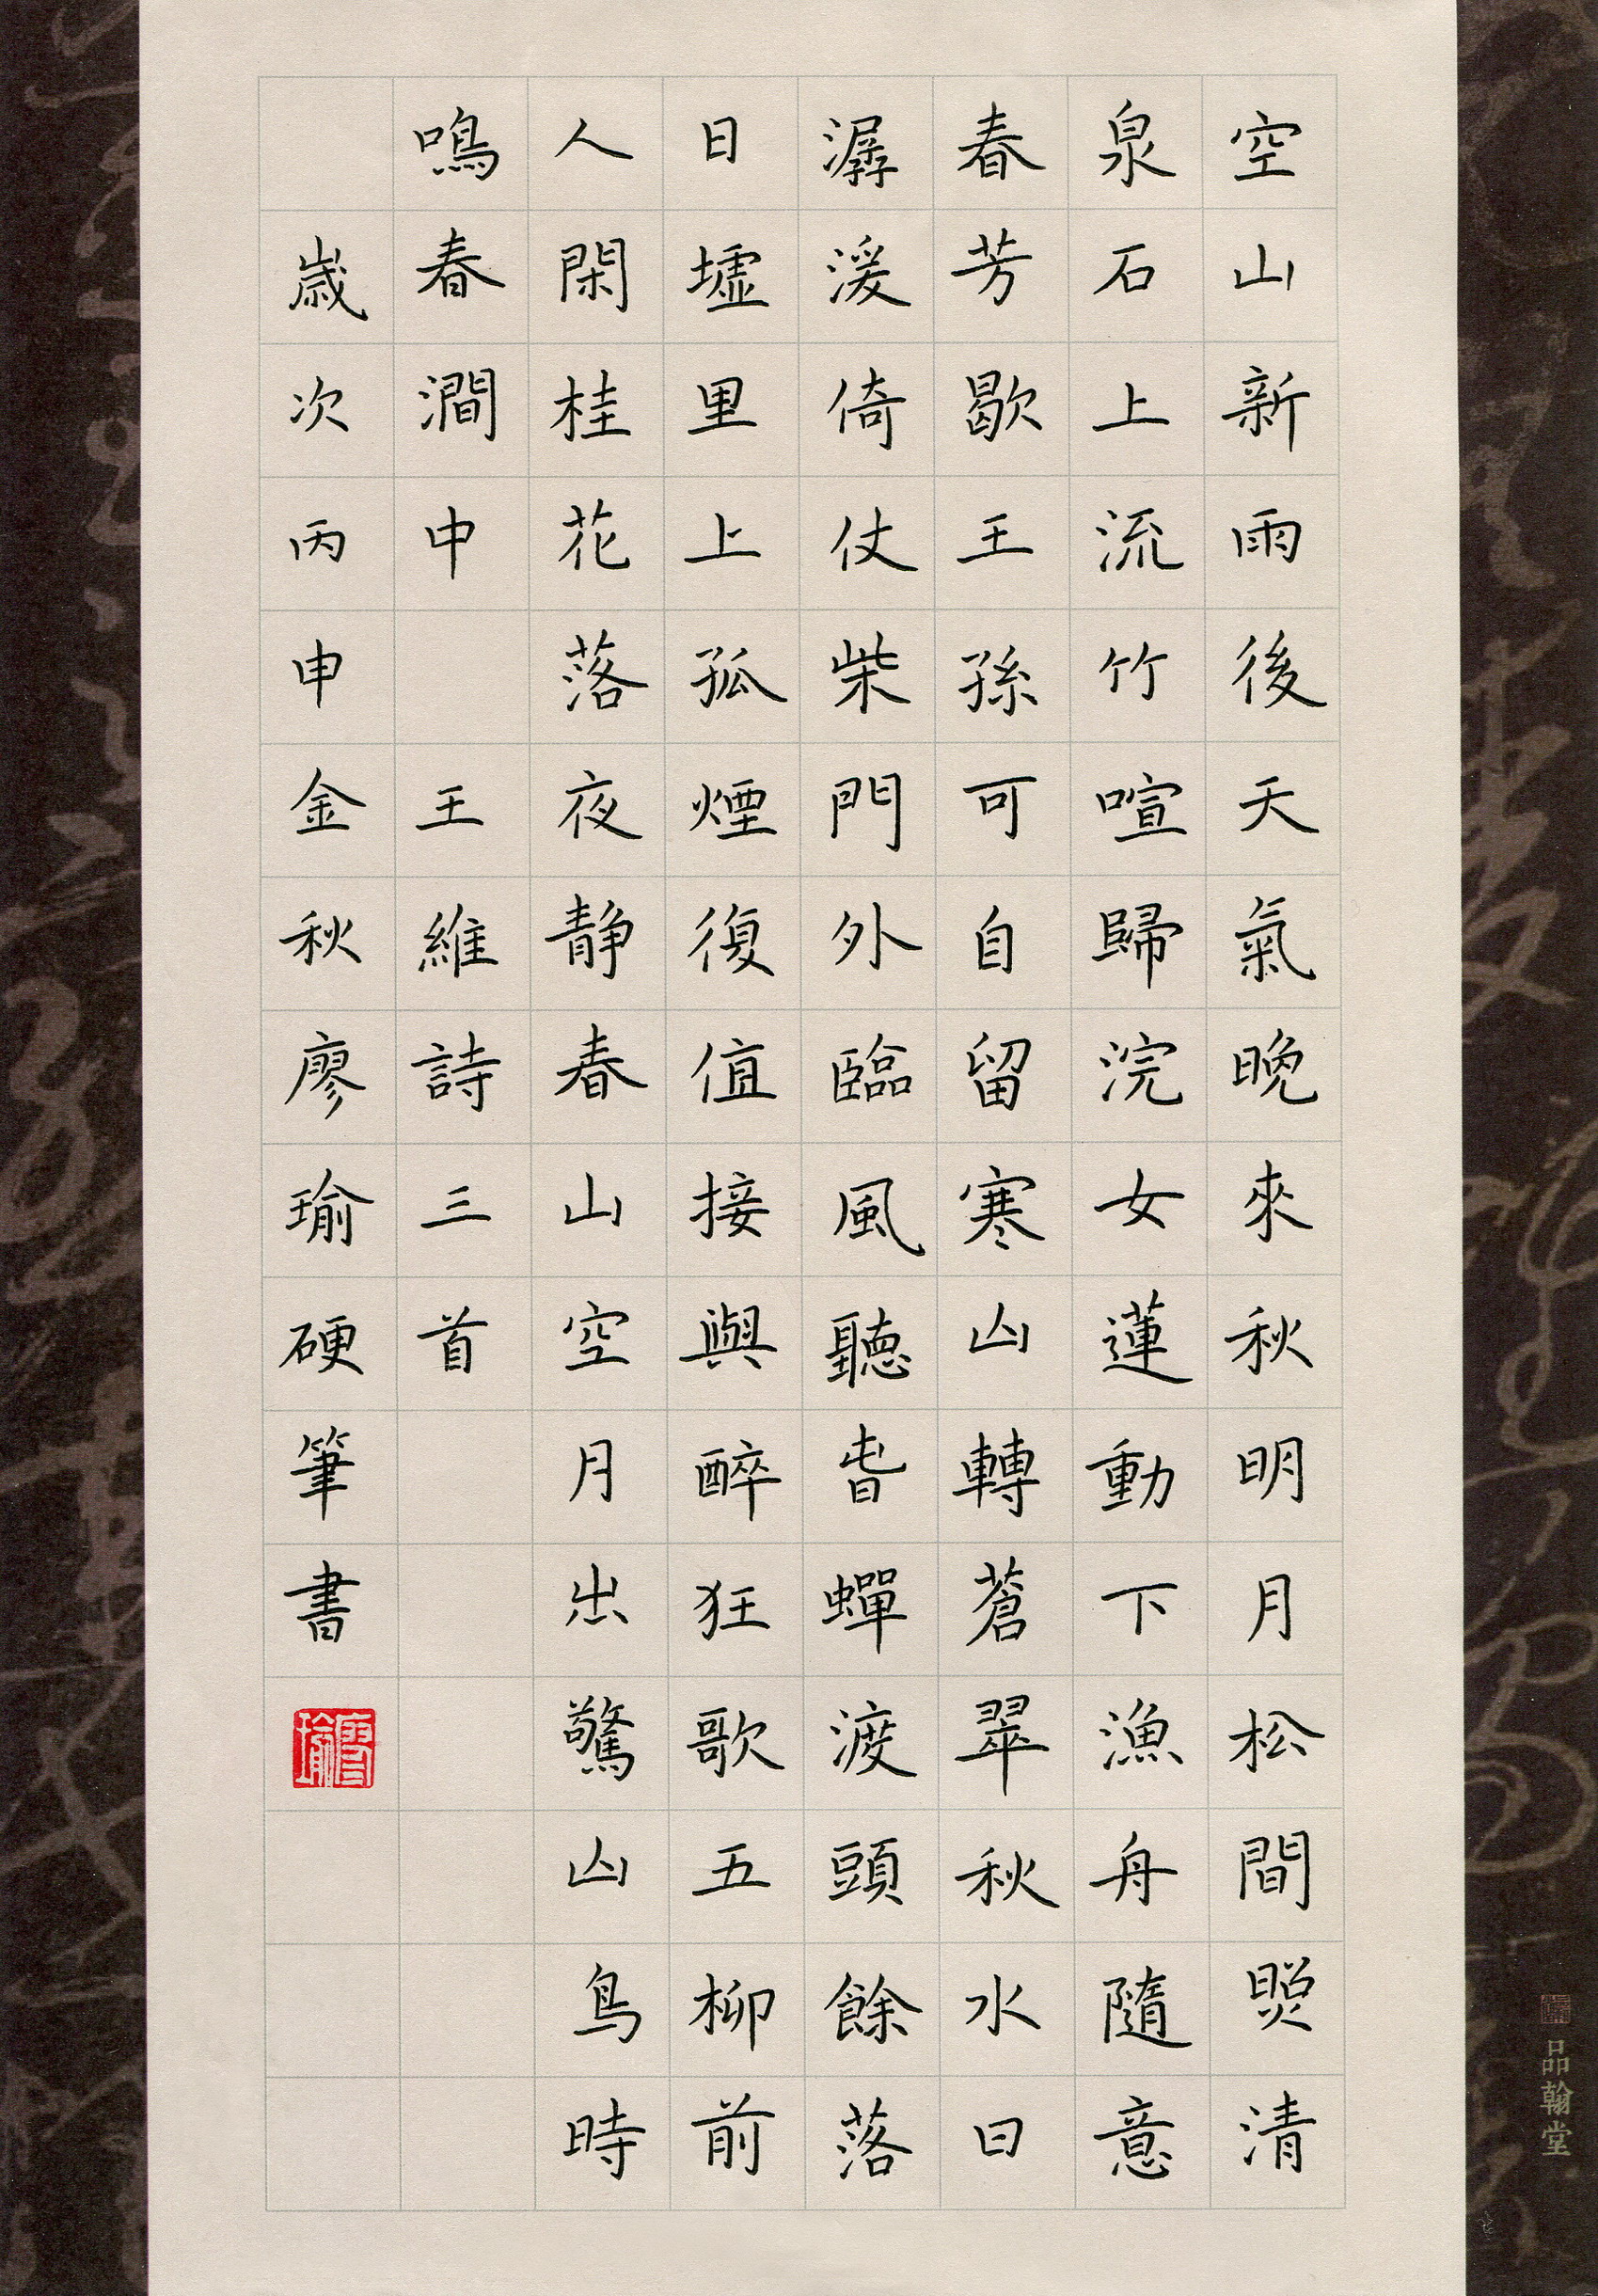 空山新雨後天氣晚來秋明月松間照清
泉石上流竹喧歸浣女蓮動下漁舟隨意
春芳歇王孫可自留寒山轉蒼翠秋水日
潺湲倚仗柴門外臨風聽旾蟬渡頭餘落
日墟里上孤煙復值接與醉狂歌五柳前
人閑桂花落夜静春山空月出驚山鳥時
鳴春澗中 王維詩三首
歲次丙申金秋廖瑜硬筆書
廖瑜
品翰堂